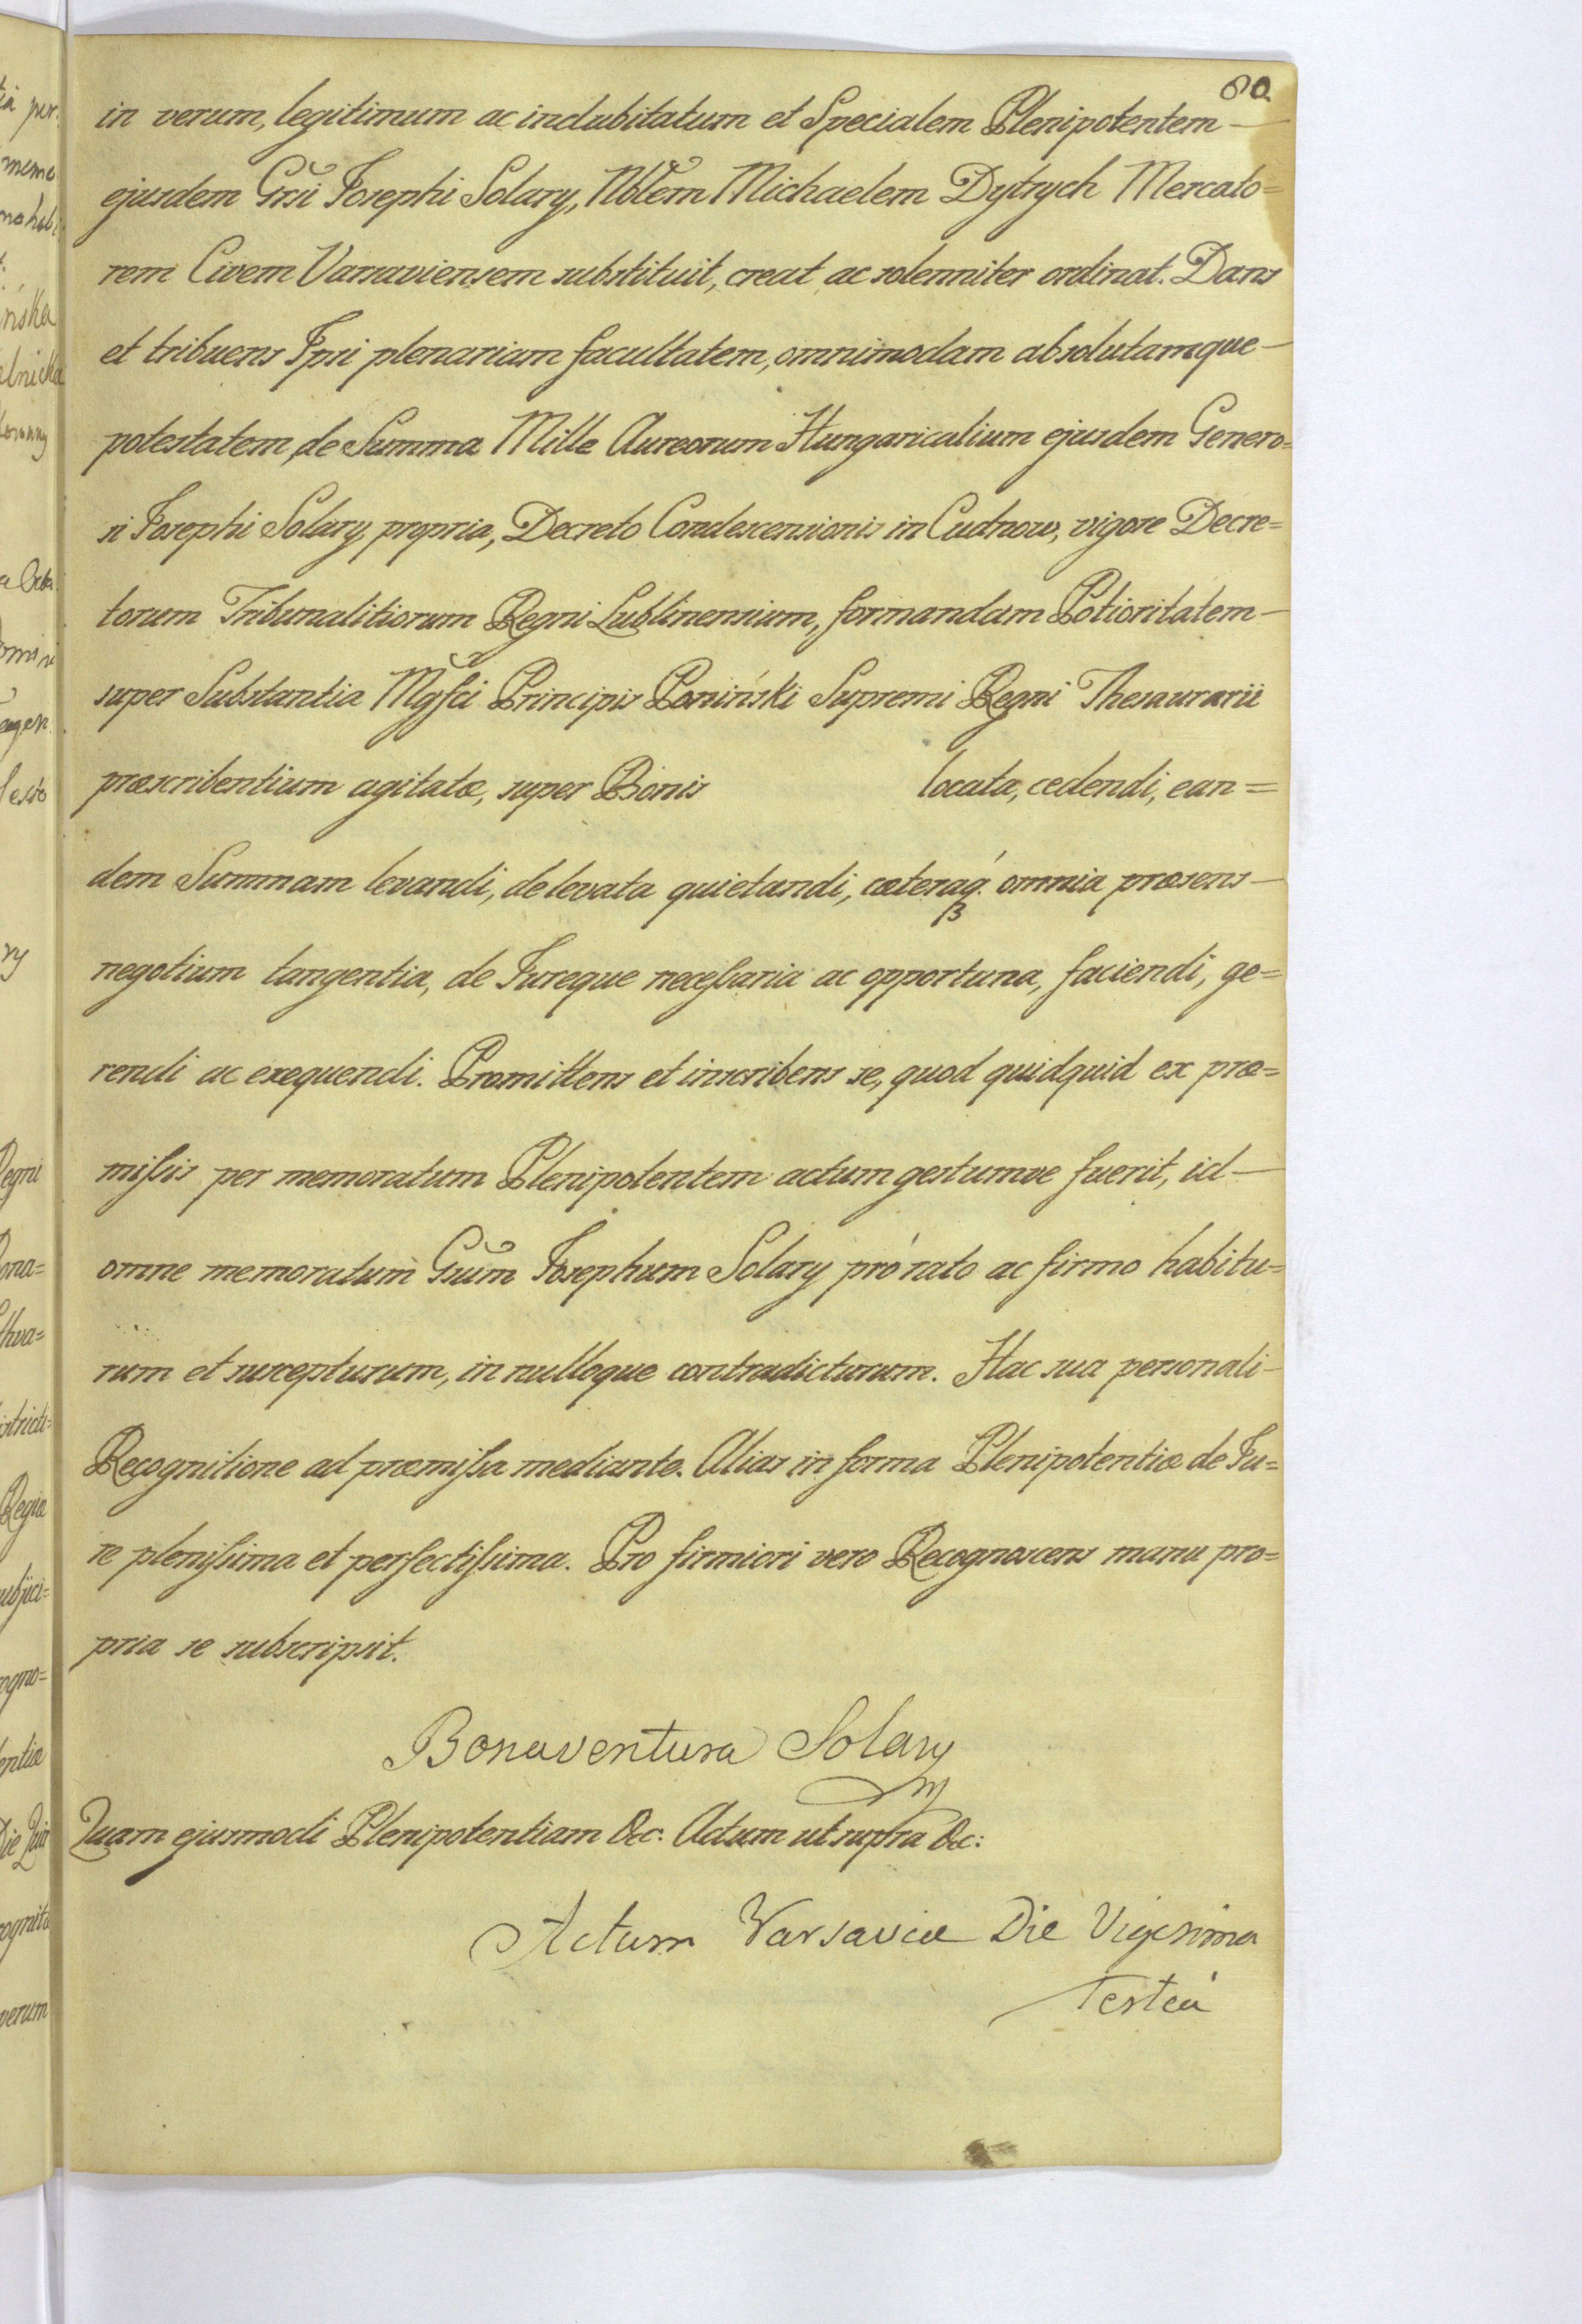 80.
in verum, legitimum ac indubitatum et Specialem Plenipotentem —
ejusdem Grsi Josephi Solary, Nblem Michaelem Dytrych Mercato=
rem Civem Varsaviensem substituit, creat ac solenniter ordinat. Dans
et tribuens Ipsi plenariam facultatem, omnimodam absolutamque —
potestatem, de Summa Mille Aureorum Hungaricalium ejusdem Genero=
si Josephi Solary, propria, Decreto Condescensionis in Cudnow, vigore Decre=
torum Tribunalitiorum Regni Lublinensium, formandam Potioritatem —
super Substantia Mgfci Principis Poniński Supremi Regni Thesaurarii
præscribentium agitatæ, super Bonis locata, cedendi, ean=
dem Summam levandi, de levata quietandi, cæteraq. omnia præsens —
negotium tangentia, de Jureque neceßaria ac opportuna, faciendi, ge=
rendi ac exequendi. Promittens et inscribens se, quod quidquid ex præ=
mißis per memoratum Plenipotentem actum gestumve fuerit, id —
omne memoratum Gsum Josephum Solary pro rato ac firmo habitu=
rum et suscepturum, in nulloque contradicturum. Hac sua personali —
Recognitione ad præmißa mediante. Alias in forma Plenipotentiæ de Ju=
re plenißima et perfectißima. Pro firmiori vero Recognoscens manu pro=
pria se subscripsit.
Bonaventura Solary
Quam ejusmodi Plenipotentiam &c: Actum ut supra &c:
Actum Varsaviæ Die Vigesima
Tertia